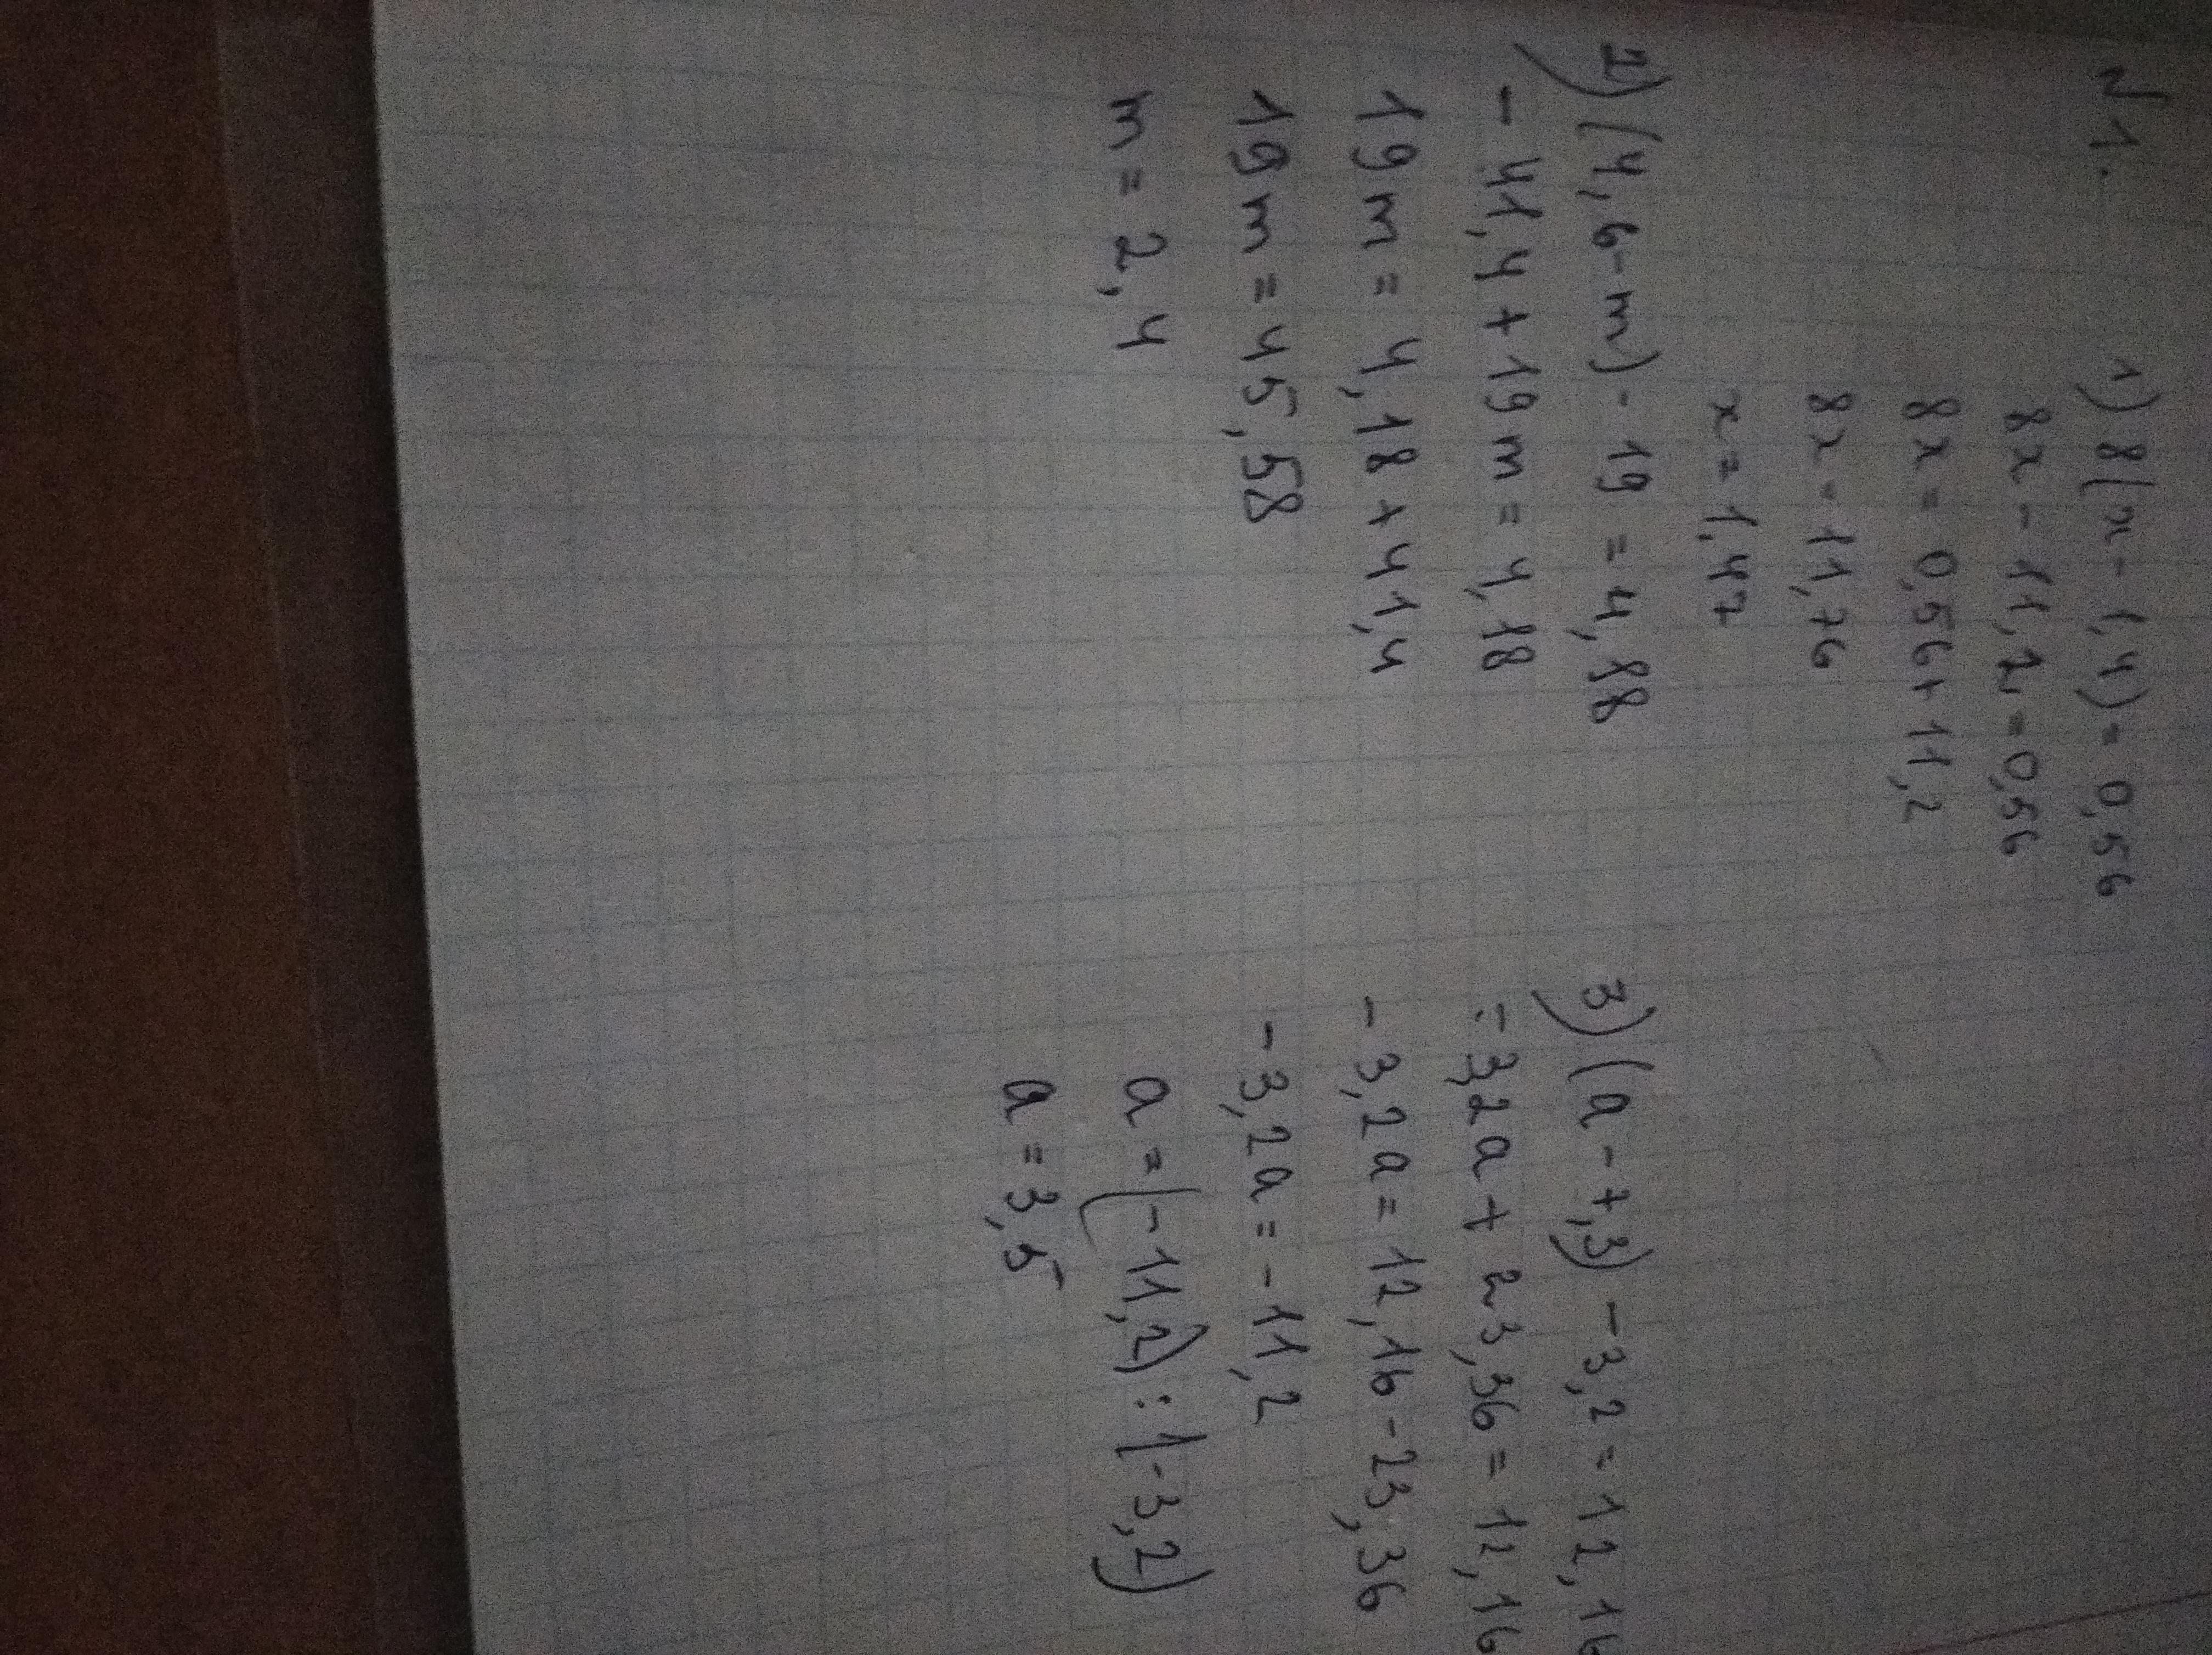 №1.
1) 8(x - 1,4) = 0,56
8x - 11,2 = 0,56
8x = 0,56 + 11,2
8x = 11,76
x = 1,47
2) (4,6-m) - 19 = 4,88
- 41,4 + 19m = 4,18
19m = 4,18 + 41,4
19m = 45,58
m = 2,4
3) (a - 7,3) - 3,2 = 12,16
- 3,2a + 23,36 = 12,16
- 3,2a = 12,16 - 23,36
- 3,2a = - 11,2
a = (- 11,2) : (-3,2)
a = 3,5